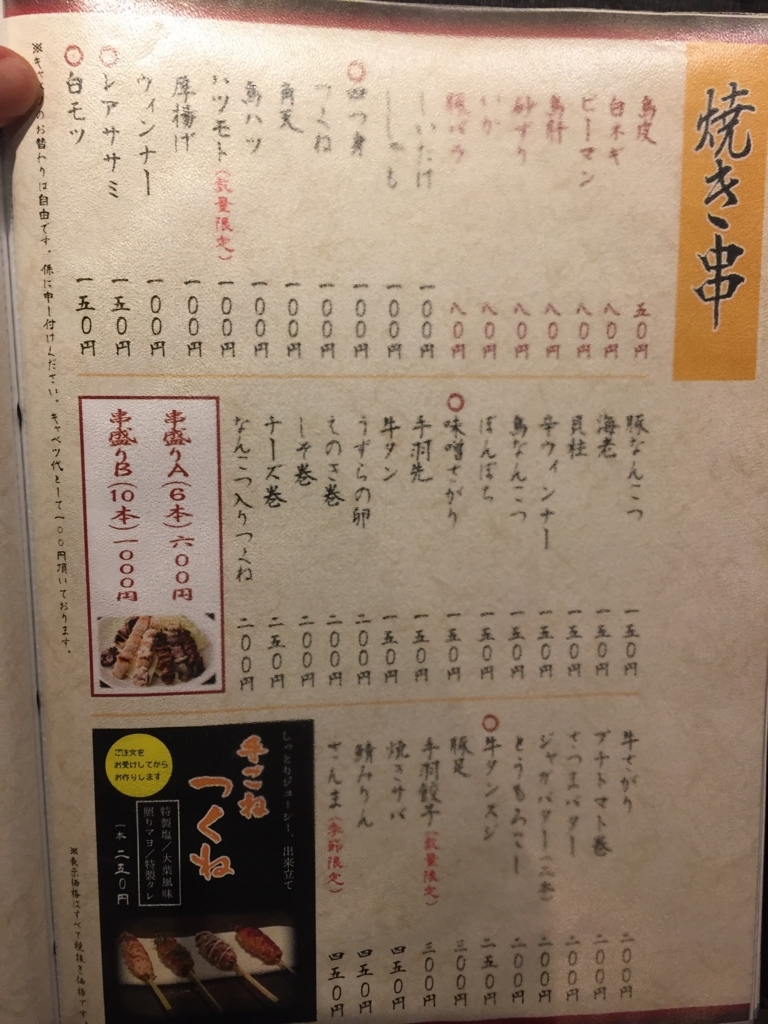 焼き串
鳥皮 五〇円
白ネギ 八〇円
ピーマン 八〇円
鳥肝 八〇円
砂ずり 八〇円
いか 八〇円
豚バラ 八〇円
しいたけ 一〇〇円
ししゃも 一〇〇円
四つ身 一〇〇円
つくね 一〇〇円
角天 一〇〇円
鳥ハツ 一〇〇円
ハツモト(数量限定) 一〇〇円
厚揚げ 一〇〇円
ウィンナー 一〇〇円
レアササミ 一五〇円
白モツ 一五〇円
※キャベツのお替わりは自由です。係に申し付けください。キャベツ代として一〇〇円頂いております。
豚なんこつ 一五〇円
海老 一五〇円
貝柱 一五〇円
辛ウィンナー 一五〇円
鳥なんこつ 一五〇円
ぼんぼち 一五〇円
味噌さがり 一五〇円
手羽先 一五〇円
牛タン 一五〇円
うずらの卵 二〇〇円
えのき巻 二〇〇円
しそ巻 二〇〇円
チーズ巻 二五〇円
なんこつ入りつくね 二〇〇円
串盛りA(6本)六〇〇円
串盛りB(10本)一〇〇〇円
牛さがり 二〇〇円
プチトマト巻 二〇〇円
さつまバター 二〇〇円
ジャガバター(二本) 二〇〇円
とうもろこし 二〇〇円
牛タンスジ 二五〇円
豚足 三〇〇円
手羽餃子(数量限定) 三〇〇円
焼きサバ 四五〇円
鯖みりん 四五〇円
さんま(季節限定) 四五〇円
しっとりジューシー、出来立て
手ごね
つくね
特製塩/大葉風味
照りマヨ/特製タレ
一本 二五〇円
ご注文を
お受けしてから
お作りします
※表示価格はすべて税抜き価格です。